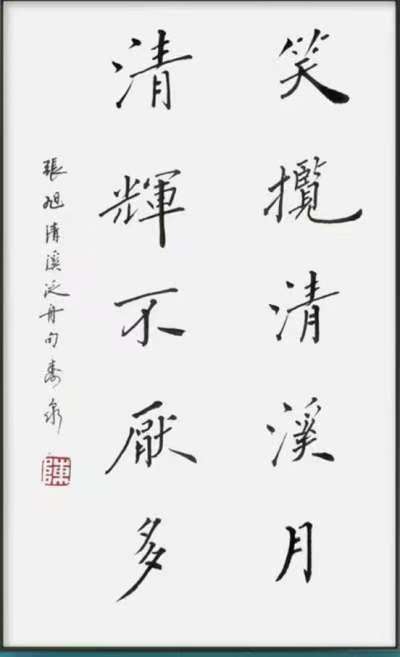 笑攬清溪月
清輝不厭多
張旭清溪泛舟句